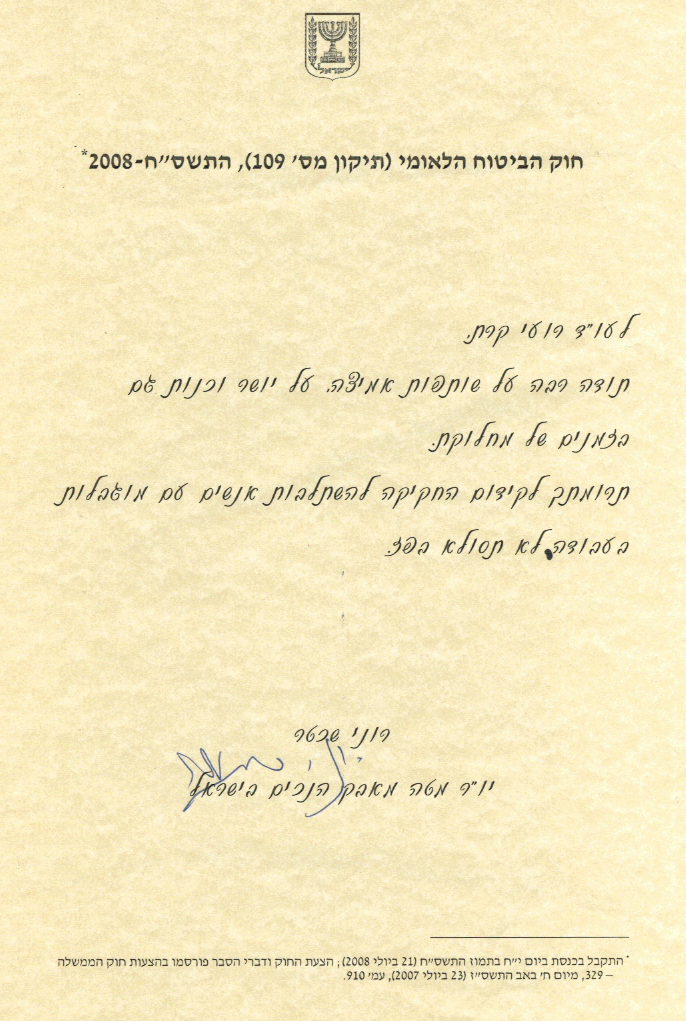 ישראל
חוק הביטוח הלאומי (תיקון מס׳ 109), התשס״ח-2008*
לעו"ד רועי קרת.
תודה רבה על שותפות אמיצה. על יושר וכנות גם
בזמנים של מחלוקת.
תרומתך לקידום החקיקה להשתלבות אנשים עם מוגבלות
בעבודה, לא תסולא בפז.
רוני שכטר
יו"ר מטה מאבק הנכים בישראל
* התקבל בכנסת ביום י״ח בתמוז התשס״ח (21 ביולי 2008); הצעת החוק ודברי הסבר פורסמו בהצעות חוק הממשלה
– 329, מיום ח׳ באב התשס״ז (23 ביולי 2007), עמ׳ 910.